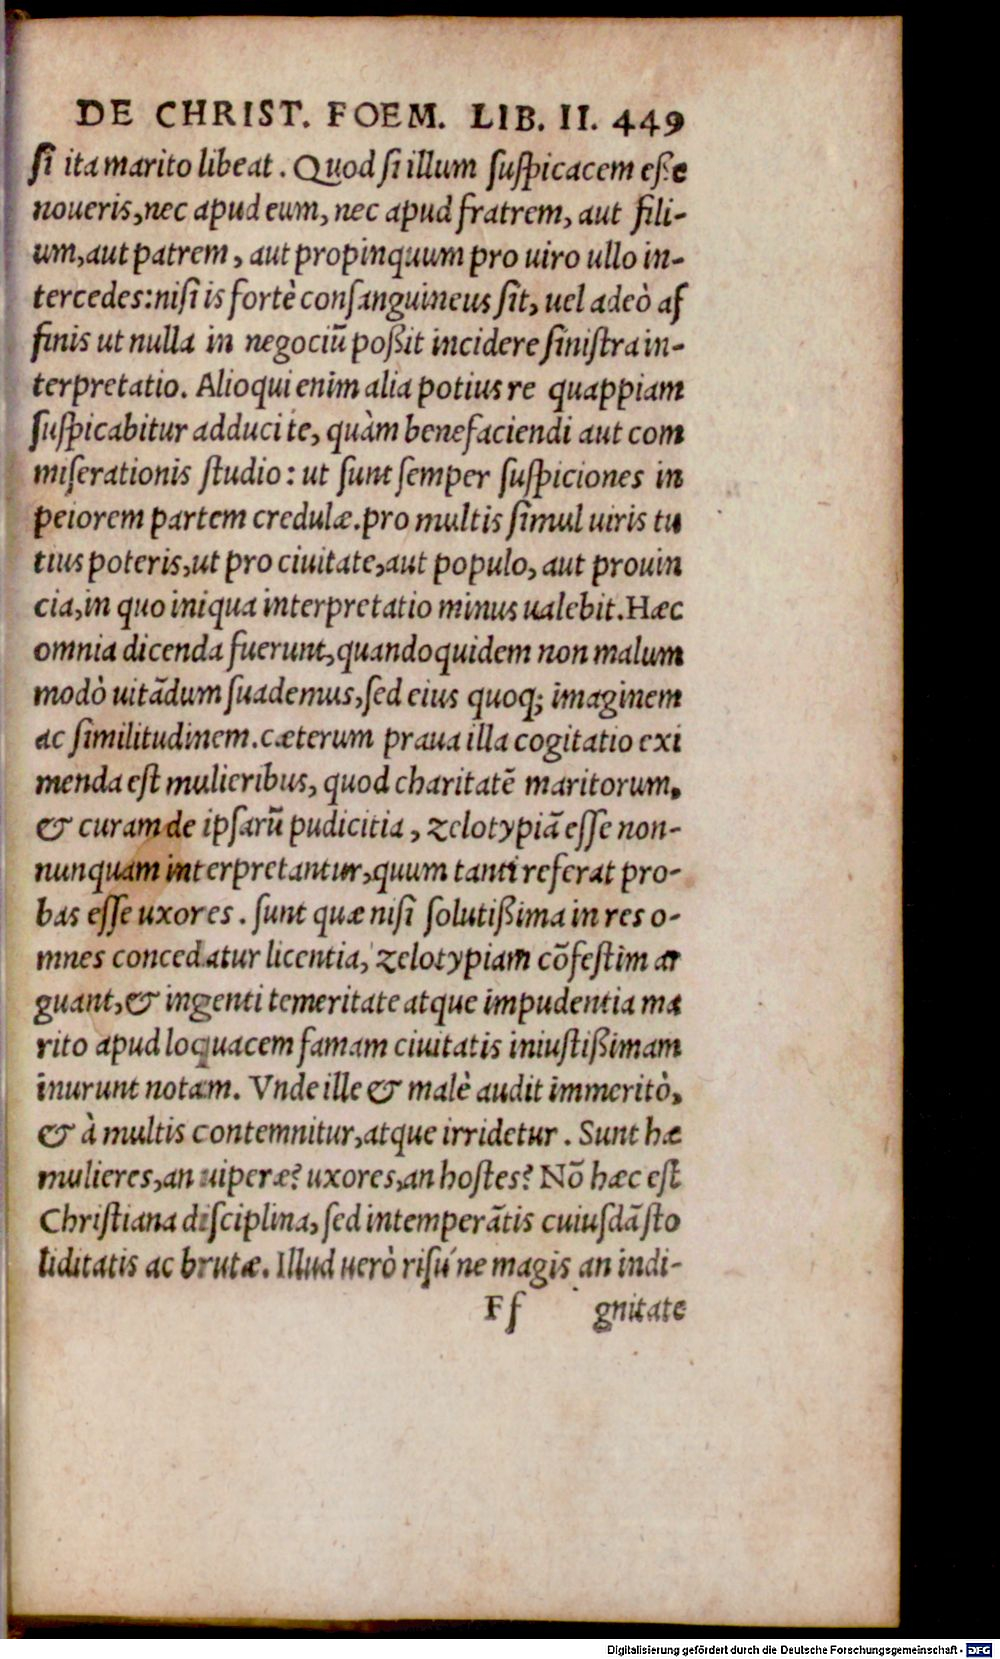 DE CHRIST. FOEM. LIB. II. 449
si ita marito libeat. Quod si illum suspicacem esse
noueris, nec apud eum, nec apud fratrem, aut fili-
um, aut patrem, aut propinquum pro uiro ullo in-
tercedes: nisi is fortè consanguineus sit, uel adeò af
finis ut nulla in negociū poßit incidere sinistra in-
terpretatio. Alioqui enim alia potius re quappiam
suspicabitur adduci te, quàm benefaciendi aut com
miserationis studio: ut sunt semper suspiciones in
peiorem partem credulæ. pro multis simul uiris tu
tius poteris, ut pro ciuitate, aut populo, aut prouin
cia, in quo iniqua interpretatio minus ualebit. Hæc
omnia dicenda fuerunt, quandoquidem non malum
modò uitādum suademus, sed eius quoq; imaginem
ac similitudinem. cæterum praua illa cogitatio exi
menda est mulieribus, quod charitatē maritorum,
& curam de ipsarū pudicitia, zelotypiā esse non-
nunquam interpretantur, quum tanti referat pro-
bas esse uxores. sunt quæ nisi solutißima in res o-
mnes concedatur licentia, zelotypiam cōfestim ar
guant, & ingenti temeritate atque impudentia ma
rito apud loquacem famam ciuitatis iniustißimam
inurunt notam. Vnde ille & malè audit immeritò,
& à multis contemnitur, atque irridetur. Sunt hæ
mulieres, an uiperæ? uxores, an hostes? Nō hæc est
Christiana disciplina, sed intemperātis cuiusdā sto
liditatis ac brutæ. Illud uerò risú ne magis an indi-
Ff gnitate
Digitalisierung gefördert durch die Deutsche Forschungsgemeinschaft - DFG